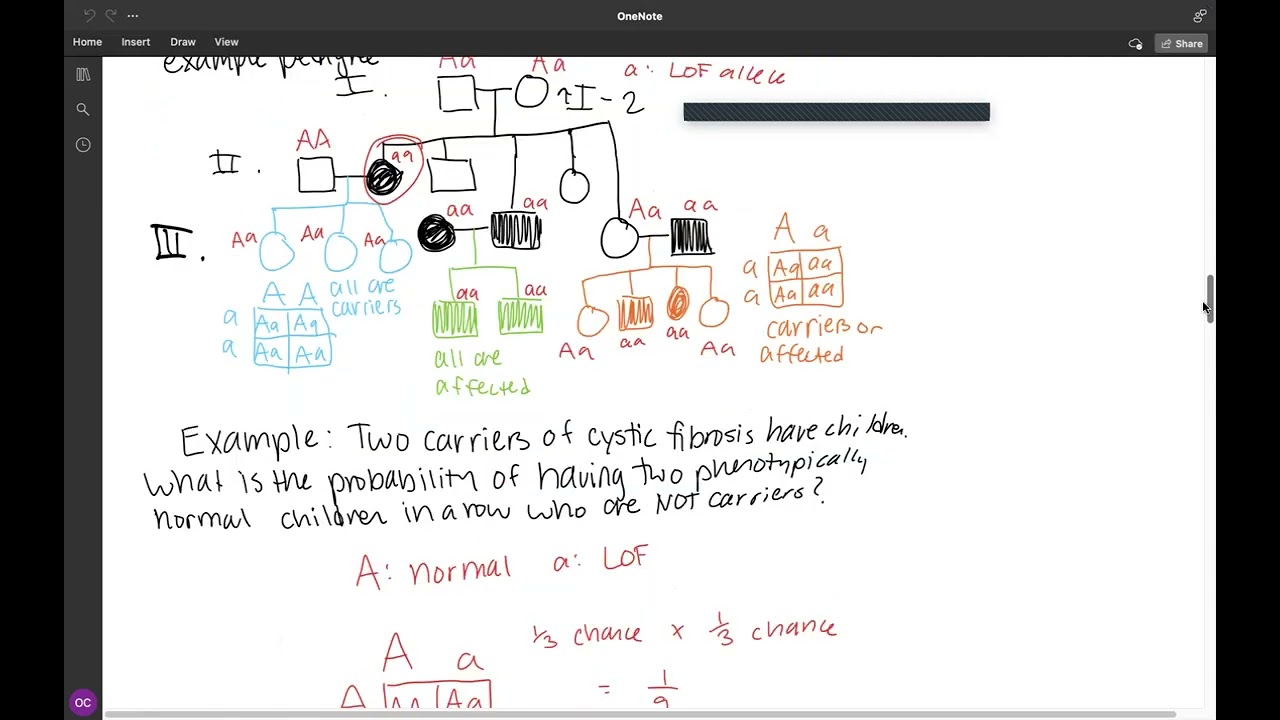 OneNote
Home Insert Draw View Share
example pedigree
Aa Aa a: LOF allele
I. I-2
AA
II. aa
aa aa Aa aa
III. Aa Aa Aa
A a
a Aa aa
a Aa aa
all are carriers
A A
a Aa Aa
a Aa Aa
aa aa
all are
affected
Aa aa aa Aa
carriers or
affected
Example: Two carriers of cystic fibrosis have children.
What is the probability of having two phenotypically
normal children in a row who are NOT carriers?
A: normal a: LOF
1/3 chance x 1/3 chance
A a
= 1/9
A Aa
OC